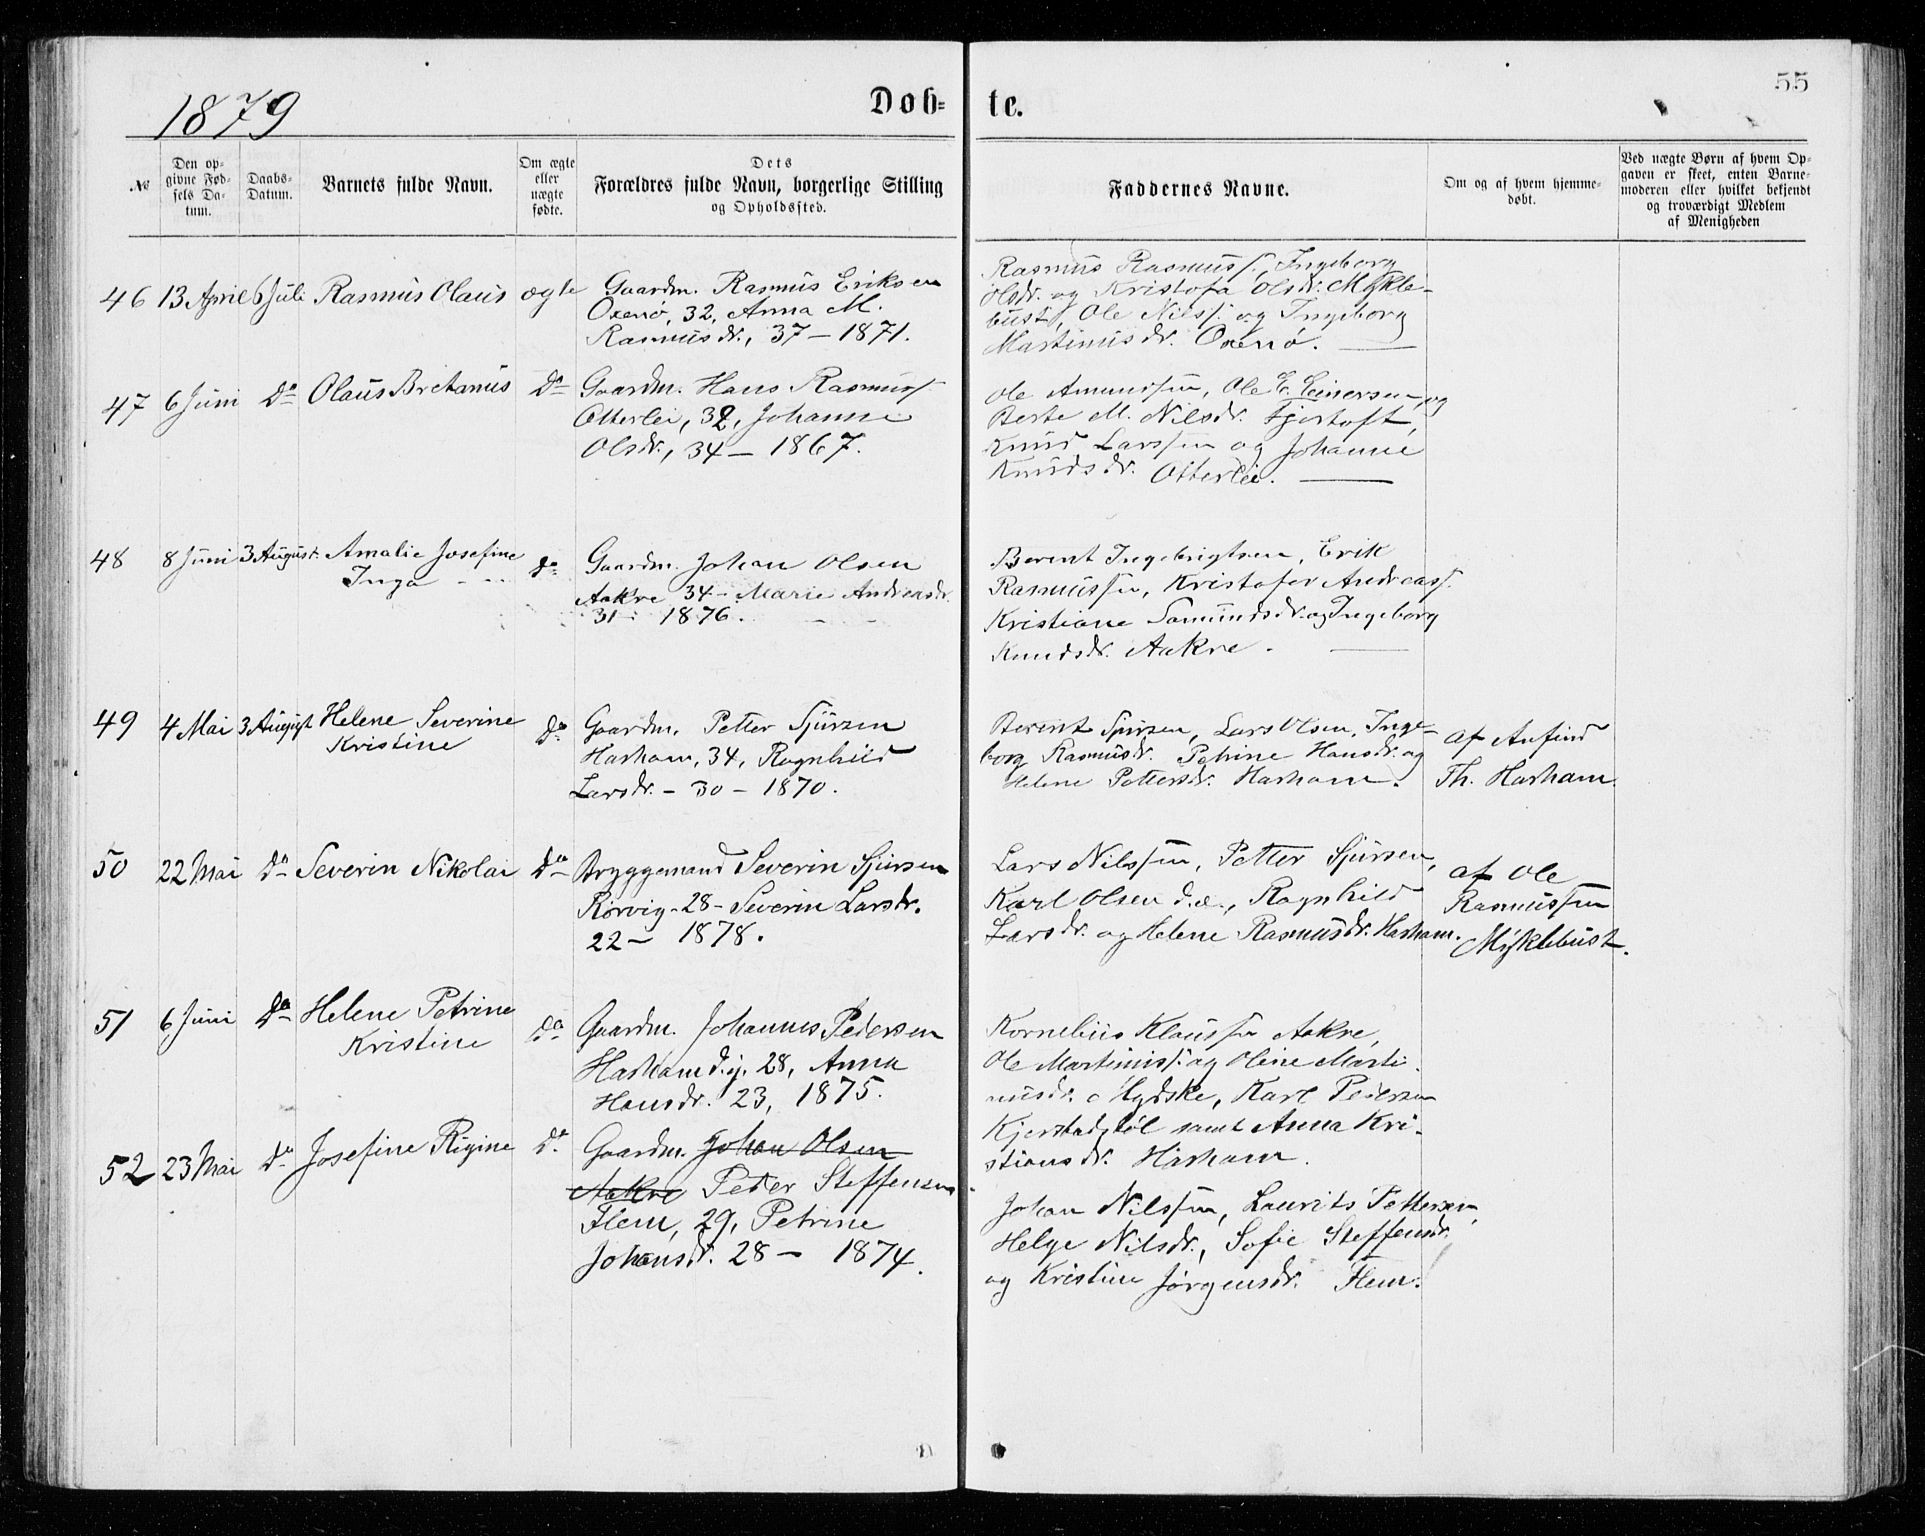 55
1879
Døb-
te.
№
Den op-
givne Fød-
sels Da-
tum.
Daabs-
Datum.
Barnets fulde Navn.
Om ægte
eller
uægte
fødte.
Dets
Forældres fulde Navn, borgerlige Stilling
og Opholdssted.
Faddernes Navne.
Om og af hvem hjemme-
døbt.
Ved uægte Børn af hvem Op-
gaven er skeet, enten Barne-
moderen eller hvilket bekjendt
og troværdigt Medlem
af Menigheden
46 13 April 6 Juli Rasmus Olaus ægte
Gaardm. Rasmus Eriksen
Oxenø, 32, Anna M.
Rasmusdr., 37 – 1871.
Rasmus Rasmuss. Ingeborg
Olsdr. og Kristofa Olsdr. Mykle-
bust, Ole Nilss. og Ingeborg
Martinusdr. Oxenø.
47 6 Juni Do Olaus Bretanus Do
Gaardm. Hans Rasmuss.
Otterlei, 32, Johanne
Olsdr., 34 – 1867.
Ole Amundsen, Ole E. Einersen, og
Berte M. Nilsdr. Fjertoft,
Knud Larssen og Johanne
Knudsdr. Otterlei.
48 8 Juni 3 August Amalie Josefine
Inga Do
Gaardm. Johan Olsen
Aakre 34 – Marie Andreasdr.
31 – 1876.
Berent Ingebrigtsen, Erik
Rasmussen, Kristofer Andreass.
Kristiane Samundsdr. og Ingeborg
Knudsdr. Aakre.
49 4 Mai 3 August Helene Severine
Kristine Do
Gaardm. Petter Sjursen
Harham, 34, Ragnhild
Larsdr. – 30 – 1870.
Berent Sjursen, Lars Olsen, Inge-
borg Rasmusdr. Petrine Hansdr. og
Helene Pettersdr. Harham.
af Anfind
Th. Harham.
50 22 Mai Do Severin Nikolai Do
Bryggemand Severin Sjursen
Rørvig – 28 – Severin Larsdr.
22 – 1878.
Lars Nilssen, Petter Sjursen,
Karl Olsen d.æ., Ragnhild
Larsdr. og Helene Rasmusdr. Harham.
af Ole
Rasmussen
Myklebust.
51 6 Juni Do Helene Petrine
Kristine Do
Gaardm. Johannes Pedersen
Harham d.y. 28, Anna
Hansdr. 23, 1875.
Kornelius Klaussen Aakre,
Ole Martinuss. og Oline Marti-
nusdr. Hydske, Karl Pedersen
Kjerstadstøl samt Anna Kri-
stiansdr. Harham.
52 23 Mai Do Josefine Rigine Do
Gaardm. Johan Olsen
Aakre Peder Steffensen
Flem, 29, Petrine
Johansdr. 28 – 1874.
Johan Nilssen, Laurits Pettersen,
Helge Nilsdr., Sofie Steffensdr.
og Kristine Jørgensdr. Flem.